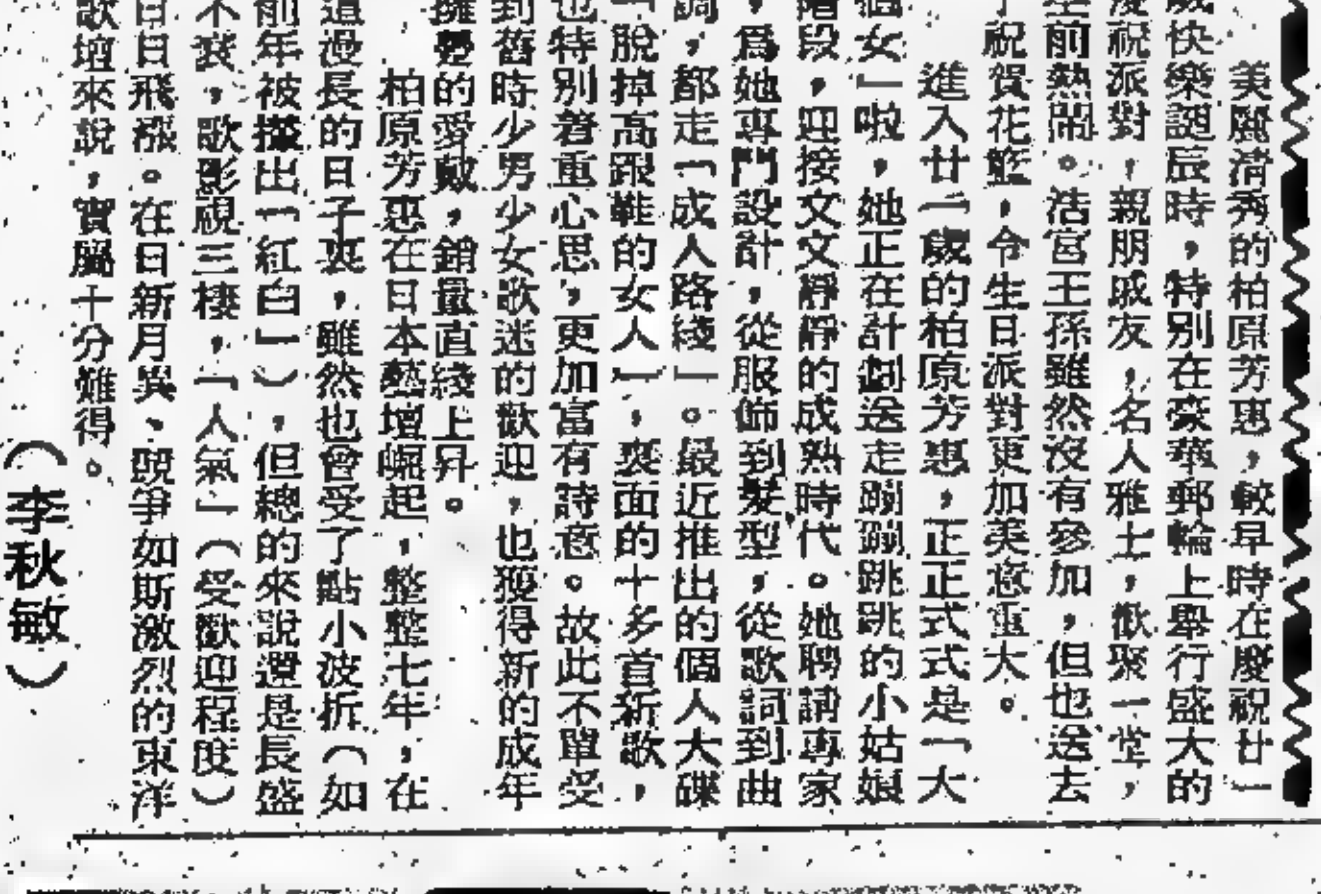 美麗清秀的柏原芳惠，較早時在慶祝廿一
歲快樂誕辰時，特别在豪華郵輪上舉行盛大的
慶祝派對，親朋戚友，名人雅士，歡聚一堂，
空前熱鬧。浩宮王孫雖然沒有參加，但也送去
了祝賀花籃，令生日派對更加美意重大。
進入廿一歲的柏原芳惠，正正式式是「大
個女」啦，她正在計劃送走蹦蹦跳跳的小姑娘
階段，迎接文文靜靜的成熟時代。她聘請專家
，爲她專門設計，從服飾到髮型，從歌詞到曲
調，都走「成人路綫」。最近推出的個人大碟
「脫掉高跟鞋的女人」，裏面的十多首新歌，
也特别着重心思，更加富有詩意。故此不單受
到舊時少男少女歌迷的歡迎，也獲得新的成年
擁躉的愛戴，銷量直綫上昇。
柏原芳惠在日本藝壇崛起，整整七年，在
這漫長的日子裏，雖然也曾受了點小波折（如
前年被攆出「紅白」），但總的來說還是長盛
不衰，歌影視三棲，「人氣」（受歡迎程度）
日日飛漲。在日新月異、競爭如斯激烈的東洋
歌壇來說，實屬十分難得。
（李秋敏）